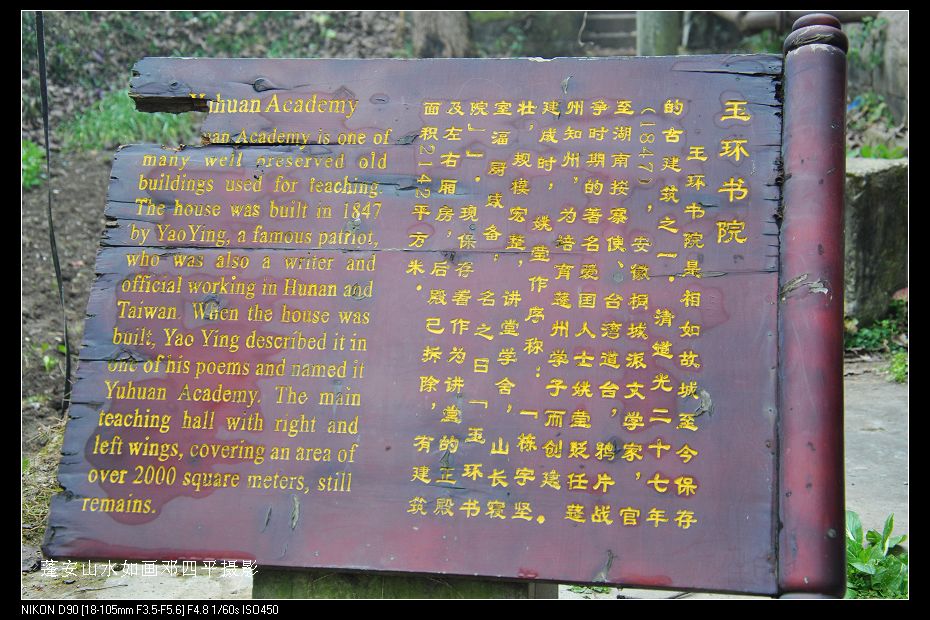 Yuhuan Academy
uan Academy is one of
many well preserved old
buildings used for teaching.
The house was built in 1847
by Yao Ying, a famous patriot,
who was also a writer and
official working in Hunan and
Taiwan. When the house was
built, Yao Ying described it in
one of his poems and named it
Yuhuan Academy. The main
teaching hall with right and
left wings, covering an area of
over 2000 square meters, still
remains.
玉环书院
玉环书院是相如故城至今保存
的古建筑之一。清道光二十七年
(1847),安徽桐城派文学家,官
至湖南按察使、台湾道台,鸦片战
争时期的著名爱国人士姚莹贬任蓬
州知州,为培育蓬州学子而创建。
建成时,姚莹作序称:「栋宇坚
壮,规模宏整,讲堂学舍,山长寝
室湢厨咸备,名之曰「玉环书
院」」。现保存着作为讲堂的正殿
及左右厢房,后殿已拆除,有建筑
面积2142平方米。
蓬安山水如画邓四平摄影
NIKON D90 [18-105mm F3.5-F5.6] F4.8 1/60s ISO450